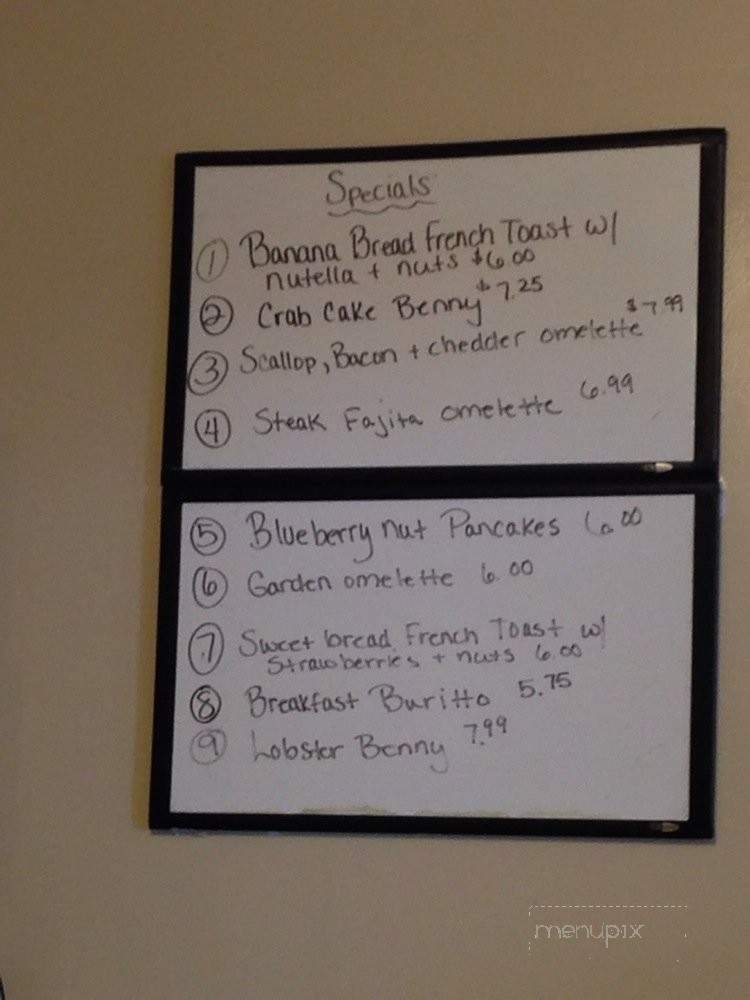 Specials
1 Banana Bread French Toast w/
nutella + nuts $6.00
2 Crab Cake Benny $7.25
3 Scallop, Bacon + chedder omelette $7.99
4 Steak Fajita omelette 6.99
5 Blueberry nut Pancakes 6.00
6 Garden omelette 6.00
7 Sweet bread French Toast w/
Strawberries + nuts 6.00
8 Breakfast Buritto 5.75
9 Lobster Benny 7.99
menupix